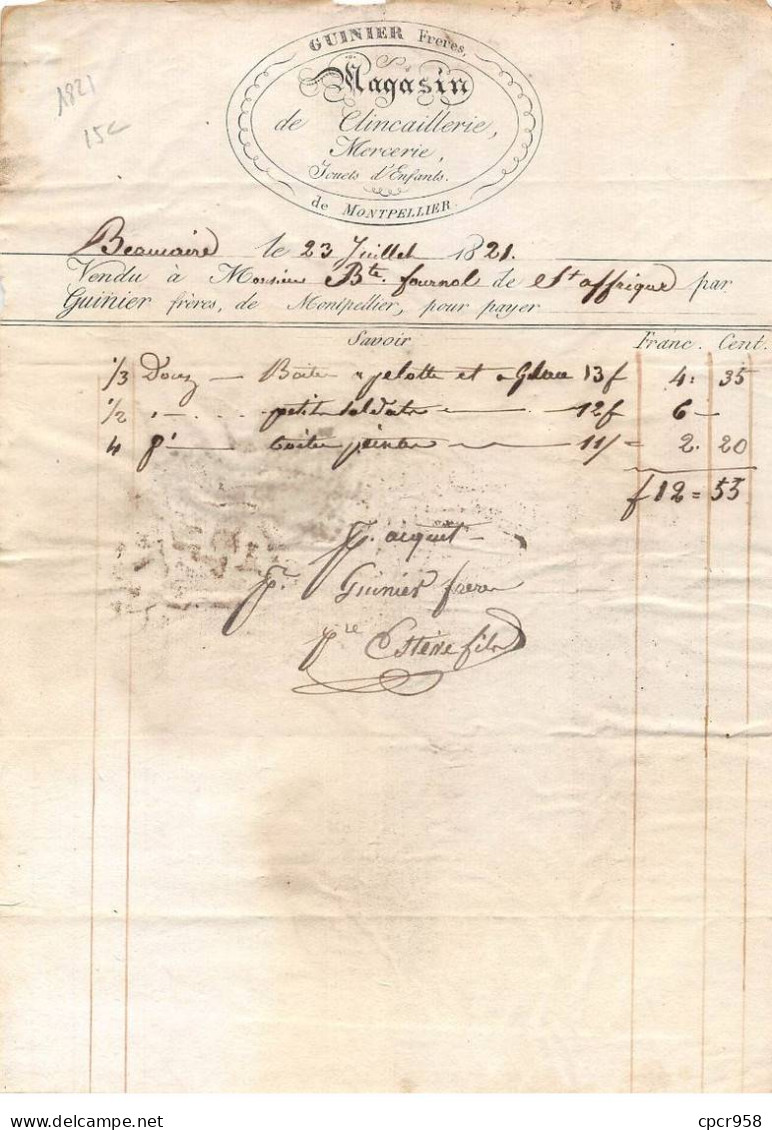 1821
15c
GUINIER Frères,
Magasin
de Clincaillerie,
Mercerie,
Jouets d'Enfants.
de MONTPELLIER
Beaucaire le 23 Juillet 1821.
Vendu à Monsieur Bte. fournol de St affrique par
Guinier frères, de Montpellier, pour payer
Savoir Franc. Cent.
1/3 Douz — Boites a pelotte et a Glace 13f 4. 35
1/2 petits soldats 12f 6 —
4 boites 11/ 2. 20
f 12 = 55
P. acquit
Pr. Guinier frères
Estève fils
cpcr958